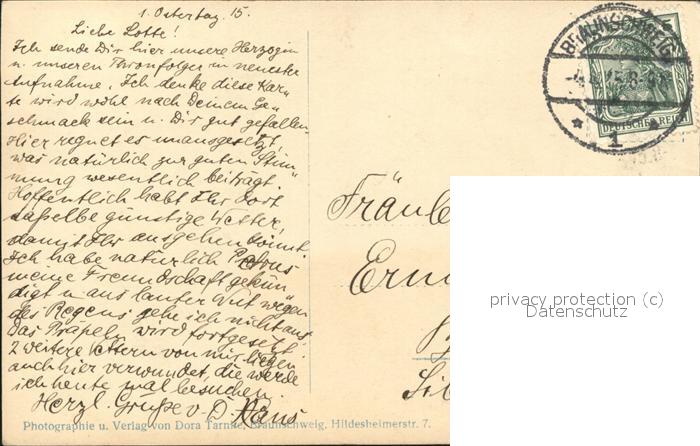 1. Ostertag. 15.
Liebe Lotte!
Ich sende Dir hier unsere Herzogin
u. unseren Thronfolger in neuester
Aufnahme. Ich denke diese Kar-
te wird wohl nach Deinem Ge-
schmack sein u. Dir gut gefallen
Hier regnet es unausgesetzt,
was natürlich zur guten Stim-
mung wesentlich beiträgt.
Hoffentlich habt Ihr dort
dasselbe günstige Wetter,
damit Ihr ausgehen könnt.
Ich habe natürlich Petrus
meine Freundschaft gekün-
digt u. aus lauter Wut wegen
des Regens gehe ich nicht aus
Das wird fortgesetzt.
2 weitere Vettern von mir liegen
auch hier verwundet, die werde
ich heute mal besuchen.
Herzl. Grüße v. D. Hans
Photographie u. Verlag von Dora Tarnke, Braunschweig, Hildesheimerstr. 7.
BRAUNSCHWEIG
1
DEUTSCHES REICH
Fräul
Ern
privacy protection (c)
Datenschutz